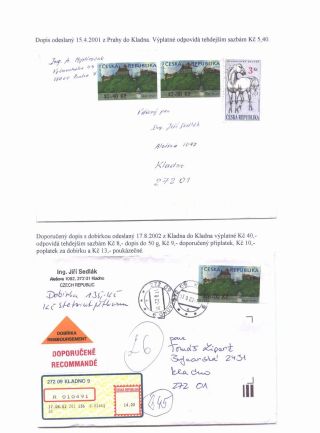 Dopis odeslaný 15.4.2001 z Prahy do Kladna. Výplatné odpovídá tehdejším sazbám Kč 5,40.
ČESKÁ REPUBLIKA
ČESKÁ REPUBLIKA
ČESKÁ REPUBLIKA
Vážený pan
Ing. Jiří Sedlák
Alešova 1092
Kladno
272 01
Doporučený dopis s dobírkou odeslaný 17.8.2002 z Kladna do Kladna výplatné Kč 40,-
odpovídá tehdejším sazbám Kč 8,- dopis do 50 g, Kč 9,- doporučený příplatek, Kč 10,-
poplatek za dobírku a Kč 13,- poukázečné
Ing. Jiří Sedlák
Alešova 1092, 272 01 Kladno
CZECH REPUBLIC
ČESKÁ REPUBLIKA
Dobírka 135,- Kč
DOBÍRKA
REMBOURSEMENT
DOPORUČENĚ
RECOMMANDÉ
272 09 KLADNO 9
R 010491
14.00
pan
Tomáš
2431
Kladno
272 01